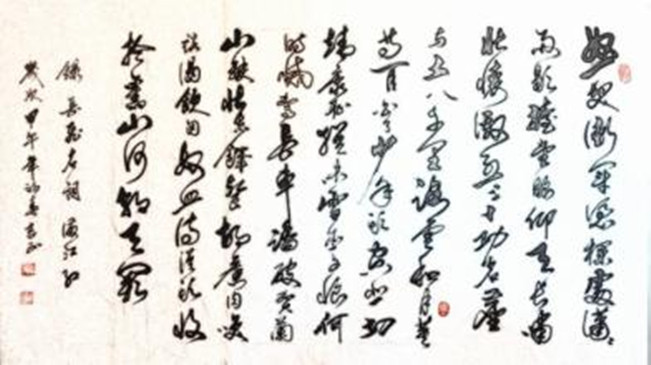 怒发冲冠凭栏处潇潇
雨歇抬望眼仰天长啸
壮怀激烈三十功名尘
与土八千里路云和月莫
等闲白了少年头空悲切
靖康耻犹未雪臣子恨何
时灭驾长車踏破贺兰
山缺壮志饥餐胡虏肉笑
谈渴饮匈奴血待从头收
拾旧山河朝天阙
录岳飞名词满江红
岁次甲午年初春